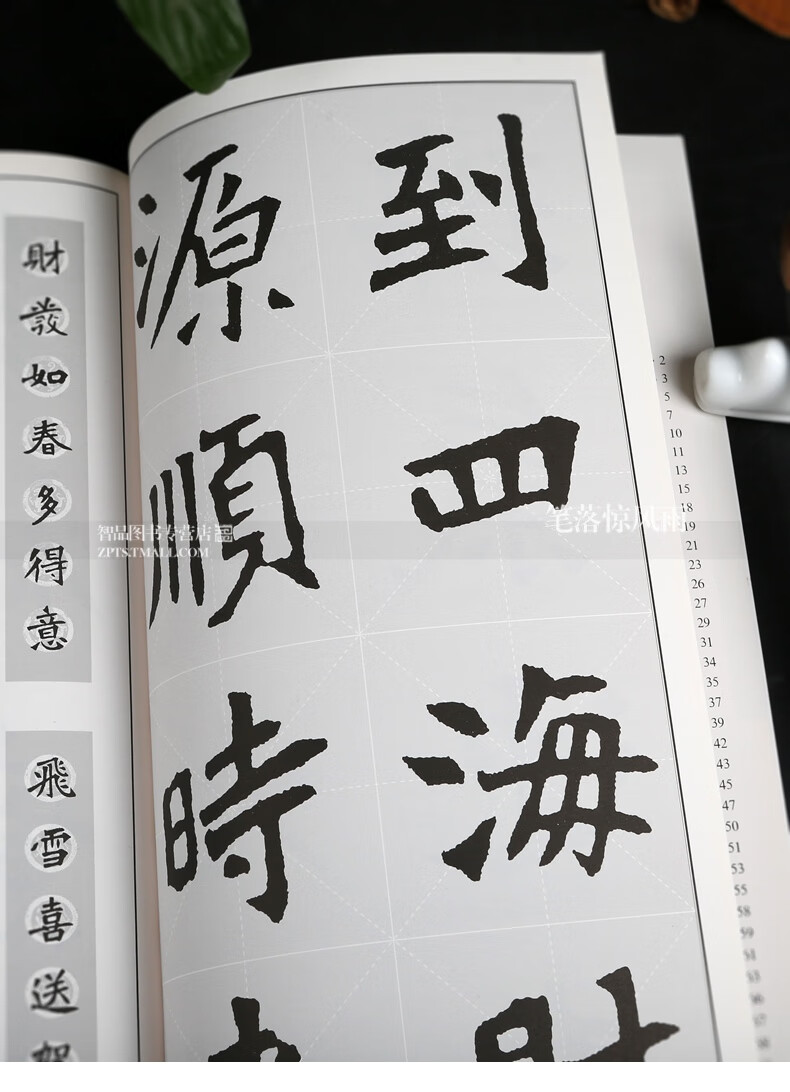 到四海
源順時
財發如春多得意
飛雪喜送
智品图书专营店
ZPTST.TMALL.COM
笔落惊风雨
2
3
5
7
10
11
13
15
18
19
21
23
26
27
29
31
34
35
37
39
42
43
45
47
50
51
53
55
58
59